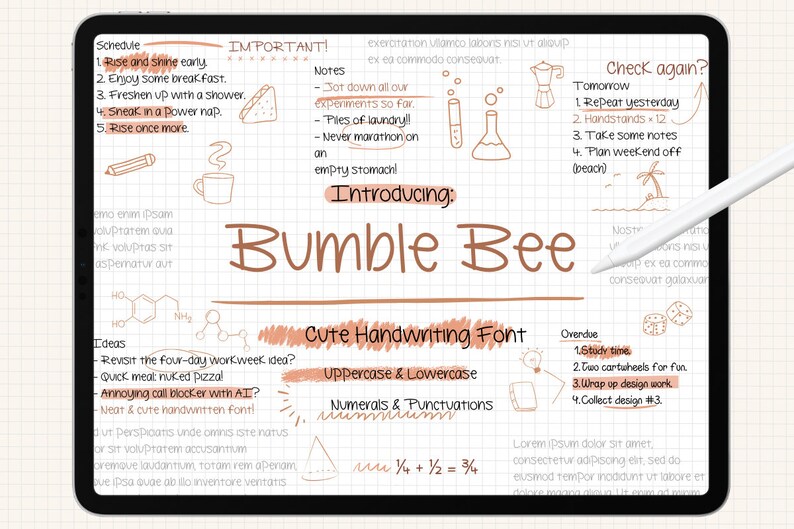 Schedule
1. Rise and shine early.
2. Enjoy some breakfast.
3. Freshen up with a shower.
4. Sneak in a power nap.
5. Rise once more.
IMPORTANT!
exercitation ullamco laboris nisi ut aliquip
ex ea commodo consequat.
Notes
- Jot down all our
experiments so far.
- Piles of laundry!!
- Never marathon on
an
empty stomach!
Check again?
Tomorrow
1. Repeat yesterday
2. Handstands × 12
3. Take some notes
4. Plan weekend off
(beach)
Introducing:
Bumble Bee
emo enim ipsam
voluptatem quia
voluptas sit
aspernatur aut
Nost
laboris nisi u
ex ea commodo
consequat galaxuar
HO
HO
NH₂
Cute Handwriting Font
Uppercase & Lowercase
Numerals & Punctuations
Ideas
- Revisit the four-day workweek idea?
- Quick meal: nuked pizza!
- Annoying call blocker with AI?
- Neat & cute handwritten font!
Overdue
1.Study time.
2.Two cartwheels for fun.
3.Wrap up design work.
4.Collect design #3.
d ut perspiciatis unde omnis iste natus
or sit voluptatem accusantium
oremque laudantium, totam rem aperiam,
que ipsa quae ab illo inventore veritatis
¼ + ½ = ¾
Lorem ipsum dolor sit amet,
consectetur adipiscing elit, sed do
eiusmod tempor incididunt ut labore et
dolore magna aliqua. Ut enim ad minim